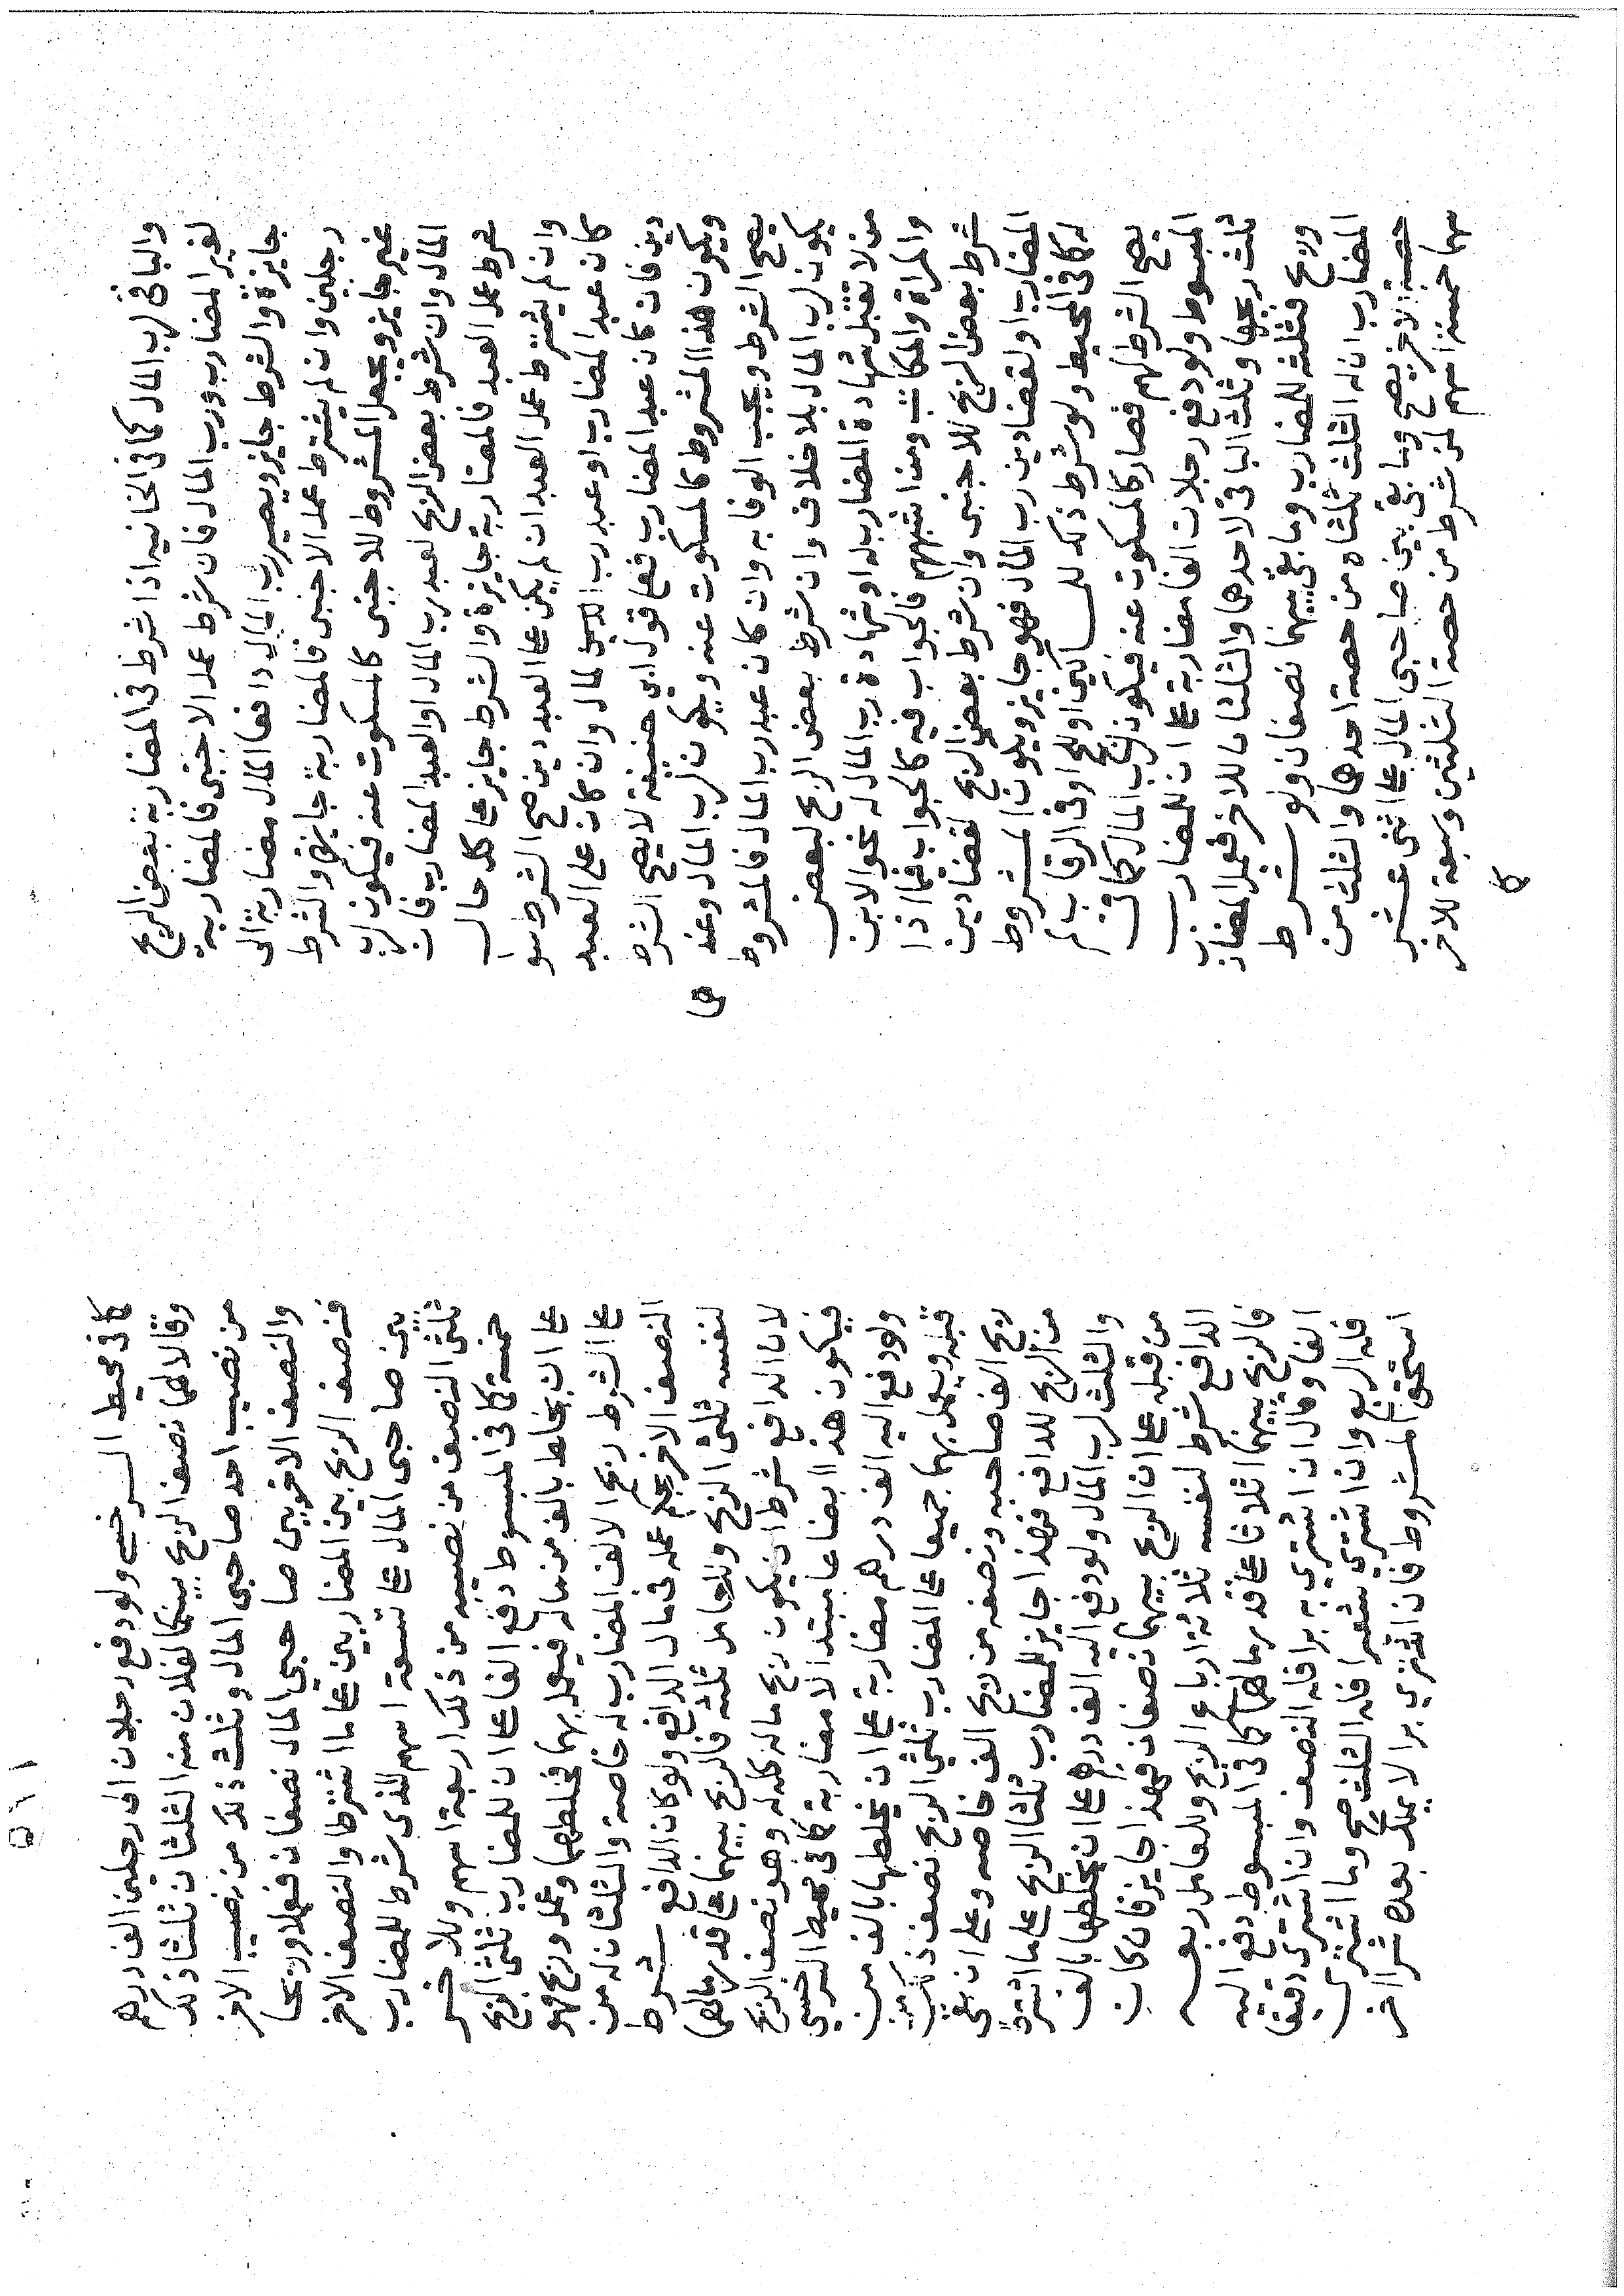 والباقى لرب المال كما فى الخانيه اذا شرط فى المضاربة بعض الربح
لغير المضارب ورب المال فان شرط عمل الاجنبى فالمضاربة
جايزة والشرط جايز ويصير رب المال دافعا المال مضاربة الى
رجلين وان لم يشترط عمل الاجنبى فالمضاربة جايزة والشرط
غير جايز ويجعل المشروط للاجنبى كالمسكوت عنه فيكون لرب
المال وان شرط بعض الربح لعبد رب المال او لعبد المضارب فان
شرط عمل العبد فالمضاربة جايزة والشرط جايز على كل حال
وان لم يشترط عمل العبد ان لم يكن على العبد دين صح الشرط سوا
كان عبد المضارب او عبد رب المال وان كان على العبد
دين فان كان عبد المضارب فعلى قول ابى حنيفة لا يصح الشرط
ويكون هذا المشروط كالمسكوت عنه ويكون لرب المال وعندهما
يصح الشرط ويجب الوفا به وان كان عبد رب المال فالمشروط
يكون لرب المال بلا خلاف وان شرط بعض الربح لبعض
من لا تقبل شهادة المضارب له او شهادة رب المال له نحو الابن
والمراة والمكاتب ومن اشبههم فالجواب فيه كالجواب فيما اذا
شرط بعض الربح للاجنبى وان شرط بعض الربح لقضا دين
المضارب او لقضا دين رب المال فهو جايز ويكون المشروط
له كما فى المحيط ولو شرط ذلك للمساكين او للحج او فى الرقاب لم
يصح الشرط لهم فصار كالمسكوت عنه فيكون لرب المال كما فى
المبسوط ولو دفع رجلان الفا مضاربة على ان للمضارب
ثلث ربحها وثلث الباقى لاحدهما والثلثان للاخر فعمل المضارب
وربح فثلثه للمضارب وما بقى بينهما نصفان ولو شرط
المضارب ان له الثلث ثلثاه من حصة احدهما والثلث من
حصة الاخر يصح وما بقى بين صاحبى المال على اثنى عشر
سهما خمسة اسهم لمن شرط من حصة الثلثين وسبعة للاخر
كا
١٦٥
كما فى محيط السرخسى ولو دفع رجلان الى رجلين الف درهم
وقالا لهما نصف الربح بينكما لفلان منه الثلثان ثلثا ذلك
من نصيب احد صاحبى المال وثلث ذلك من نصيب الاخر
والنصف الاخر بين صاحبى المال نصفان فعملا وربحا
فنصف الربح بين المضاربين على ما اشترطا والنصف الاخر
بين صاحبى المال على تسعة اسهم للذى شرط للمضارب
ثلثى النصف من نصيبه من ذلك اربعة اسهم وللاخر
خمسة كما فى المبسوط دفع الفا على ان للمضارب ثلثى الربح
على ان يخلط بالف من ماله فيعمل بهما فخلطهما وعمل وربح فهو
على الشرط ربح الالف المضارب له خاصة والثلثان له من
النصف الاخر بحكم عمله فى مال الدافع ولو كان الدافع شرط
لنفسه ثلثى الربح وللعامل ثلثه فالربح بينهما على قدر مالهما
لان الدافع شرط ان يكون ربح ماله كله له وهو نصف الربح
فيكون هذا ابضاعا مبتدا لا مضاربة كما فى محيط السرخسى
ولو دفع اليه الف درهم مضاربة على ان يخلطها بالف من
قبله ويعمل بهما جميعا على المضارب ثلثى الربح نصف ذلك من
ربح الف صاحبه ونصفه من ربح الف خاصه وعلى ان بقى
من الربح للدافع فهذا جايز للمضارب ثلثا الربح على ما اشترط
والثلث لرب المال ولو دفع اليه الف درهم على ان يخلطها بالف
من قبله على ان الربح بينهما نصفان فهذا جايز فان كان
الدافع شرط لنفسه ثلاثة ارباع الربح وللعامل ربعه
فالربح بينهما اثلاثا على قدر مالهما كما فى المبسوط دفع اليه
الفا وقال ان اشترى به برا فله النصف وان اشترى دقيقا
فله الربع وان اشترى شعيرا فله الثلث صح وما اشترى
استحق المشروط فان اشترى برا لا يملك بعده شرا اخر